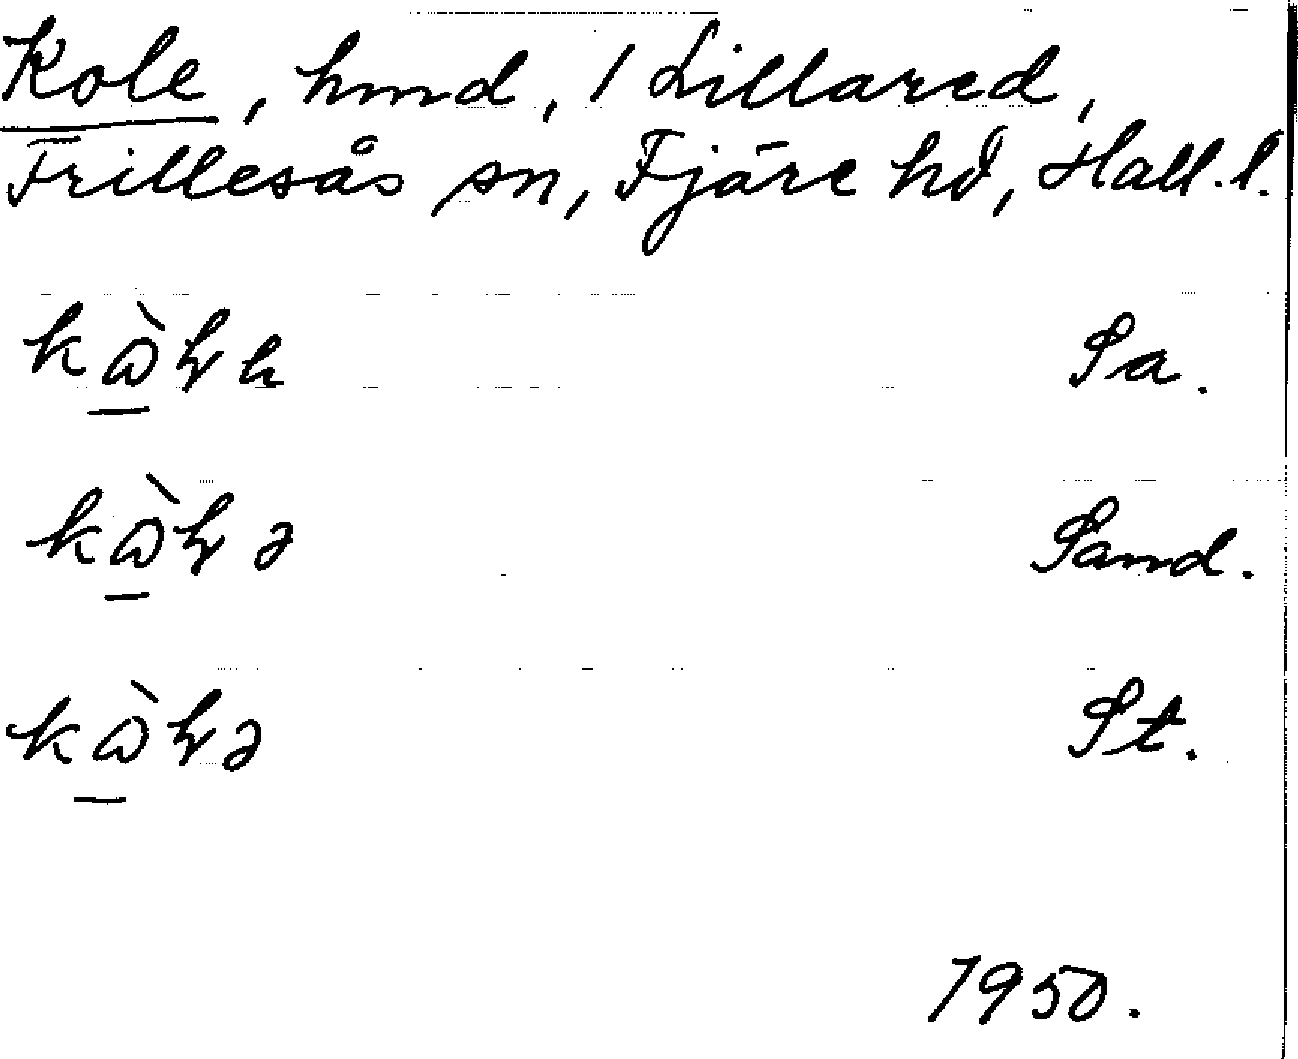 Kole, hmd, 1 Lillared,
Frillesås sn, Fjäre hd, Hall. l.
Sa.
Sand.
St.
1950.